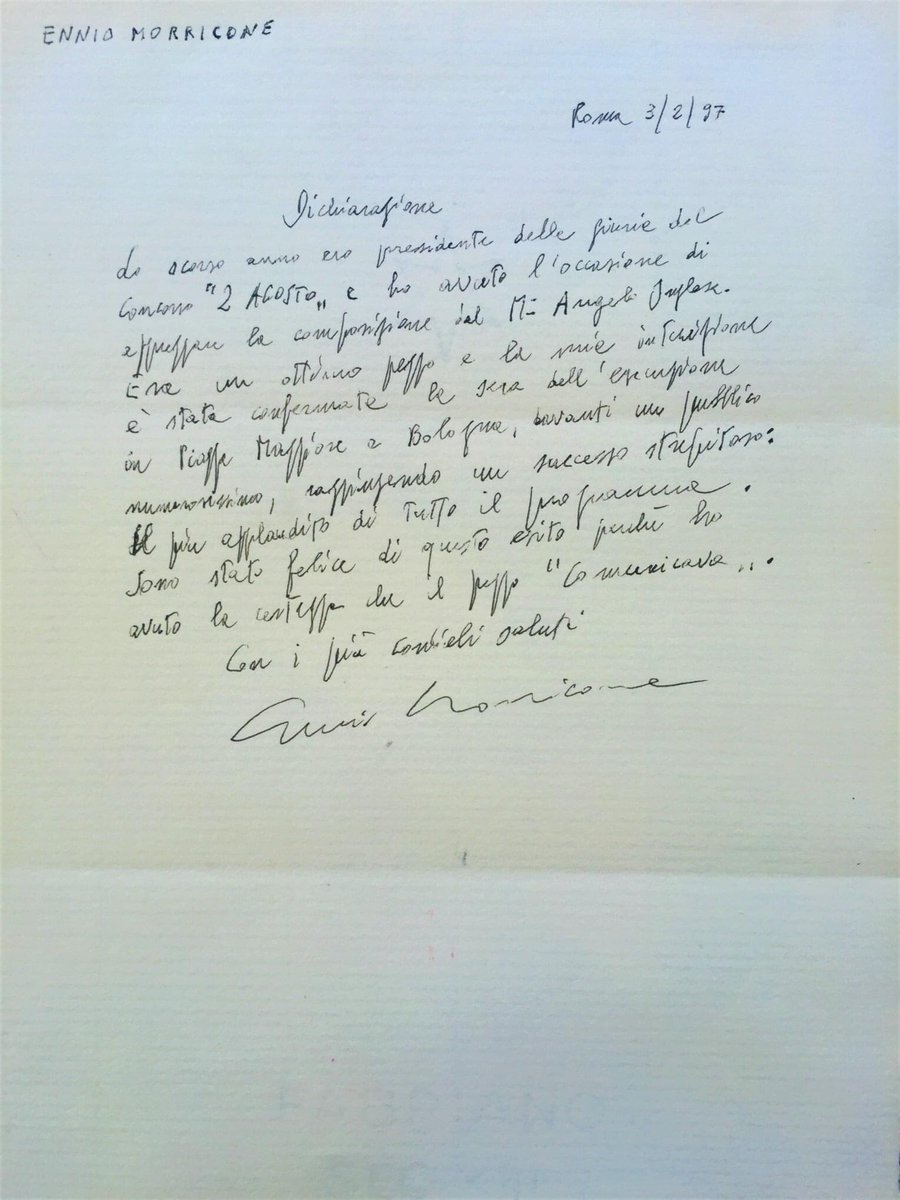 ENNIO MORRICONE
Roma 3/2/97
Dichiarazione
Lo scorso anno ero presidente della giuria del
Concorso "2 AGOSTO" e ho avuto l'occasione di
apprezzare la composizione del M° Angelo Inglese.
Era un ottimo pezzo e la mia intuizione
è stata confermata la sera dell'esecuzione
in Piazza Maggiore a Bologna, davanti un pubblico
numerosissimo, raggiungendo un successo strepitoso:
Il più applaudito di tutto il programma.
Sono stato felice di questo esito perché ho
avuto la certezza che il pezzo "comunicava".
Con i più cordiali saluti
Ennio Morricone